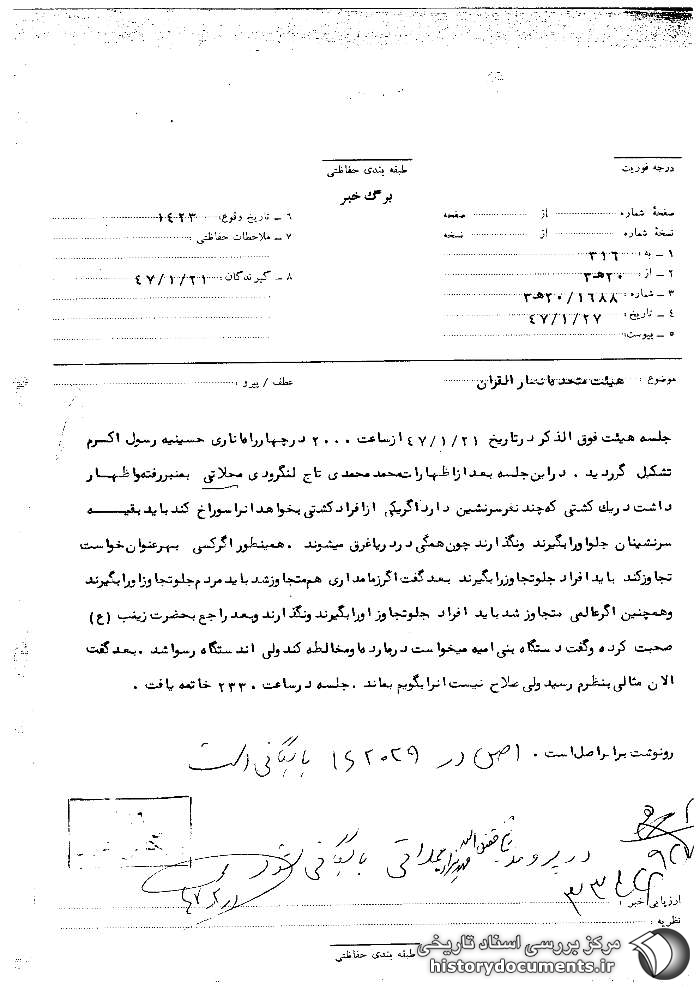 درجه فوریت
طبقه بندی حفاظتی
برگ خبر
صفحهٔ شماره از صفحه
نسخهٔ شماره از نسخه
۱ ـ به : ۳۱۶
۲ ـ از : ۲۰هـ۳
۳ ـ شماره : ۲۰/۱۶۸۸هـ۳
۴ ـ تاریخ : ۴۷/۱/۲۷
۵ ـ پیوست:
۶ ـ تاریخ وقوع:
۷ ـ ملاحظات حفاظتی :
۸ ـ گیرندگان : ۴۷/۱/۲۱
موضوع : هیئت متحدیانصار القران
عطف / پیرو :
جلسه هیئت فوق الذکر درتاریخ ۴۷/۱/۲۱ ازساعت ۲۰۰۰ درچهارراه اناری حسینیه رسول اکرم
تشکیل گردید . دراین جلسه بعد ازاظهارات محمد محمدی تاج لنگرودی محلاتی بمنبررفته واظهار
داشت دریك کشتی که چند نفرسرنشین دارد اگریکی ازافراد کشتی بخواهد انراسوراخ کند باید بقیه
سرنشینان جلواورابگیرند ونگذارند چون همگی دردریاغرق میشوند . همینطور اگرکسی بهرعنوان خواست
تجاوزکند باید افراد جلوتجاوزرابگیرند بعد گفت اگرزمامداری هم متجاوزشد باید مردم جلوتجاوزاورابگیرند
وهمچنین اگرعالمی متجاوز شد باید افراد جلوتجاوز اورابگیرند ونگذارند وبعد راجع بحضرت زینب (ع)
صحبت کرده وگفت دستگاه بنی امیه میخواست درمارد ماومخالطه کند ولی اند ستگاه رسواشد . بعد گفت
الان مثالی بنظرم رسید ولی صلاح نیست انرابگویم بماند . جلسه درساعت ۲۳۳۰ خاتمه یافت .
رونوشت برابراصل است . اصل در ۲۰۲۹ بایگانی است
در پرونده شیخ فضل اله مهدیزاده محلاتی بایگانی شود
ارزیابی خبر
نظریه :
طبقه بندی حفاظتی
مرکز بررسی اسناد تاریخی
historydocuments.ir